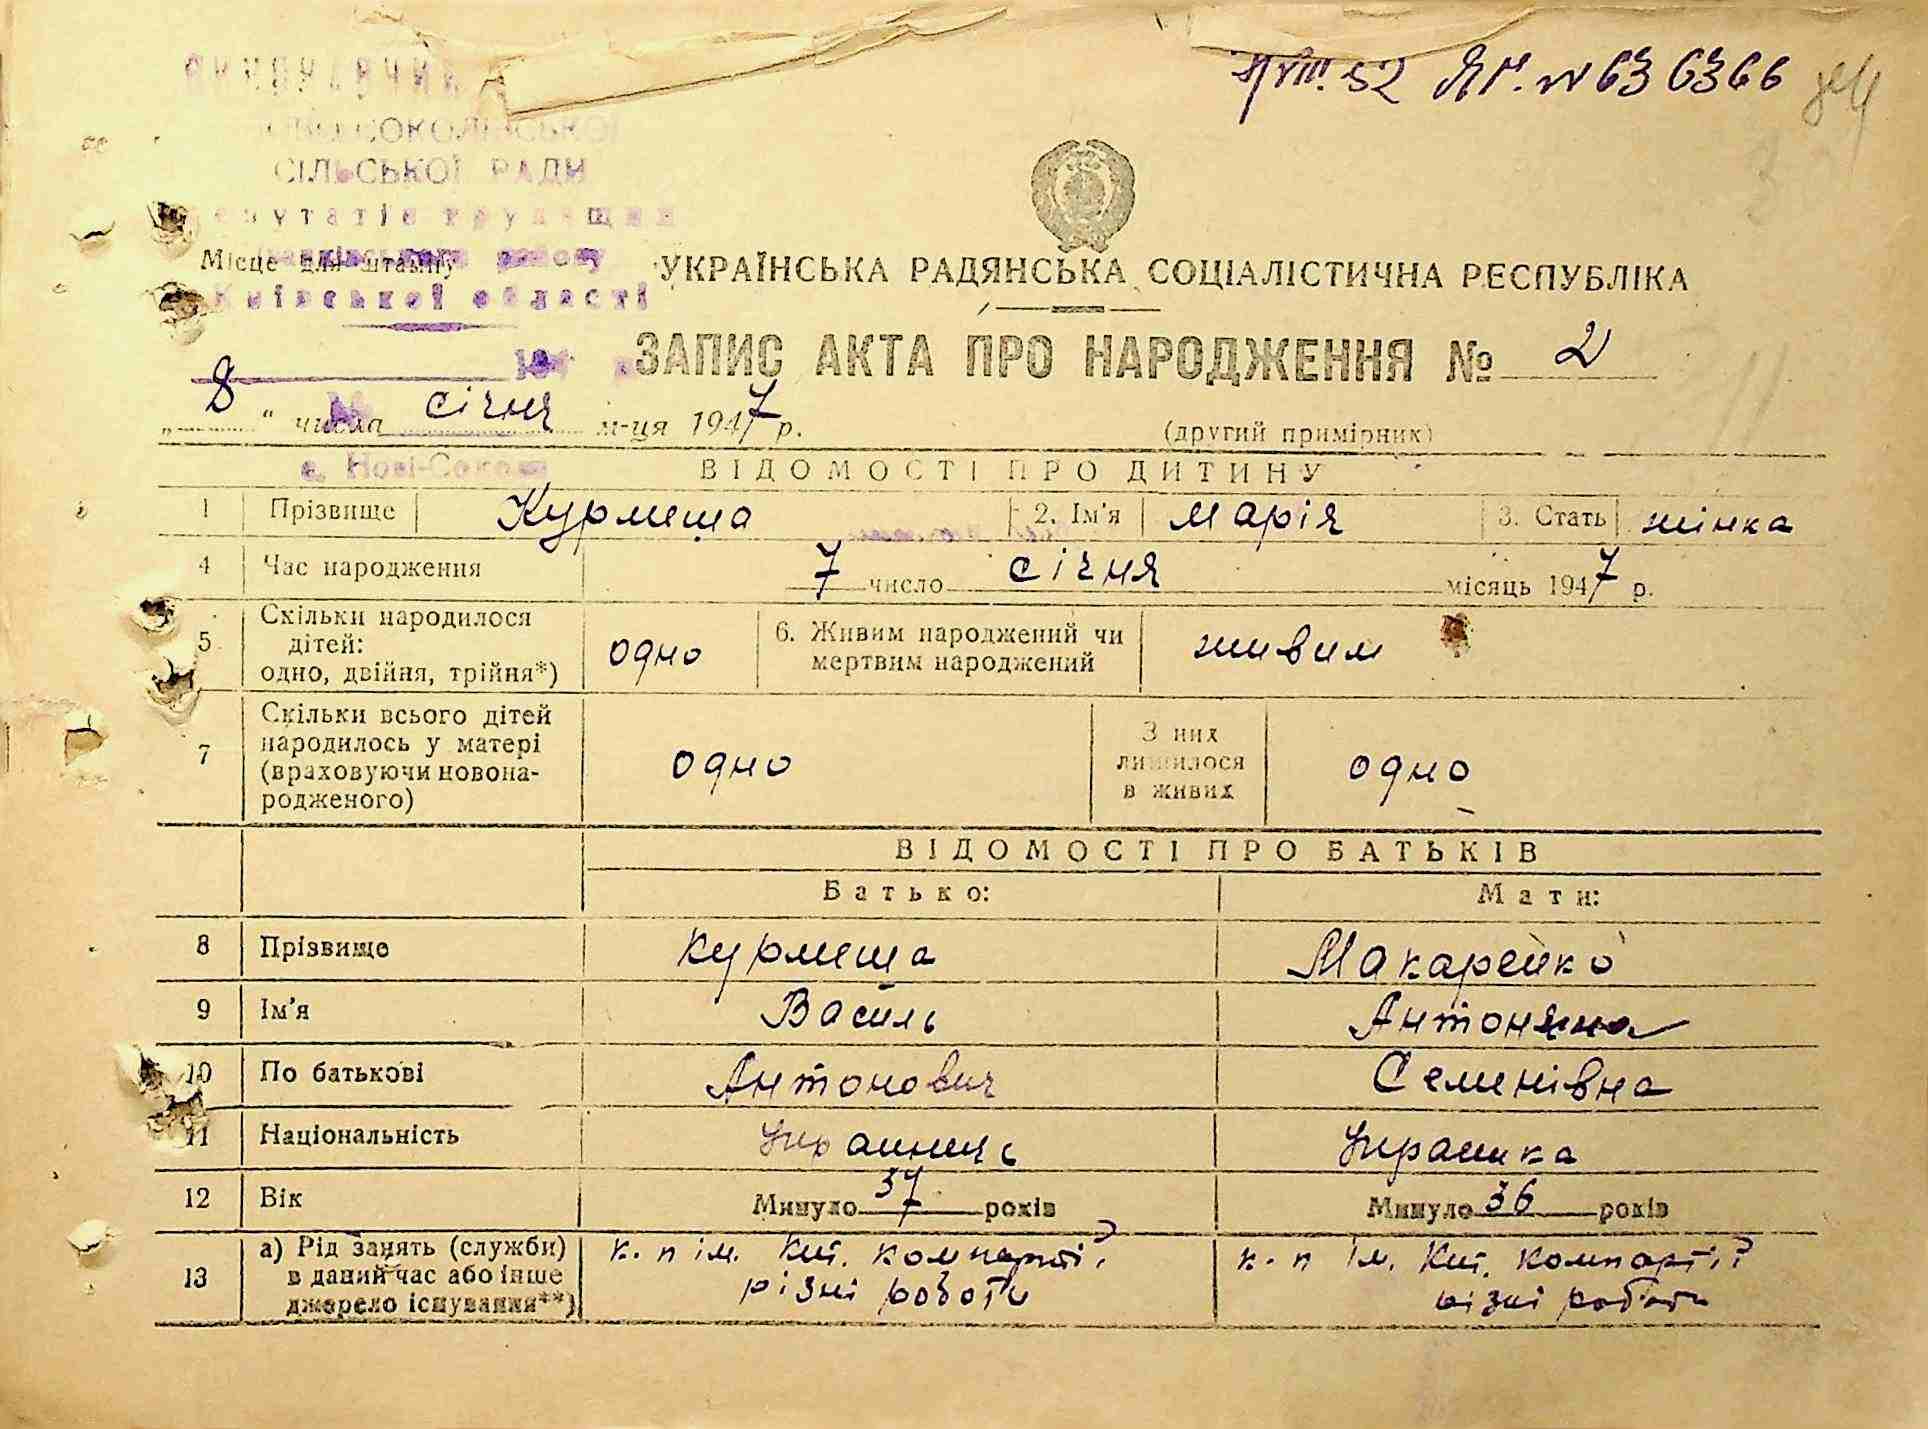 VIII. 52 ЯГ. № 636366
СОКОЛІВСЬКОЇ
СІЛЬСЬКОЇ РАДИ
депутатів трудящих
Місце для штампу району
Київської області
УКРАЇНСЬКА РАДЯНСЬКА СОЦІАЛІСТИЧНА РЕСПУБЛІКА
194
ЗАПИС АКТА ПРО НАРОДЖЕННЯ № 2
„ 8 “ числа січня м-ця 1947 р.
(другий примірник)
с. Нові-Соколи
ВІДОМОСТІ ПРО ДИТИНУ
1 Прізвище Курмеша 2. Ім'я Марія 3. Стать жінка
4 Час народження 7 число січня місяць 1947 р.
5 Скільки народилося дітей: одно, двійня, трійня*) одно 6. Живим народжений чи мертвим народжений живим
7 Скільки всього дітей народилось у матері (враховуючи новонародженого) одно З них лишилося в живих одно
ВІДОМОСТІ ПРО БАТЬКІВ
Батько: Мати:
8 Прізвище Курмеша Макарейко
9 Ім'я Василь Антоніна
10 По батькові Антонович Семенівна
11 Національність Українець Українка
12 Вік Минуло 37 років Минуло 36 років
13 а) Рід занять (служби) в даний час або інше джерело існування**) к. п ім. Кит. компартії к. п ім. Кит. компартії
різні роботи різні роботи